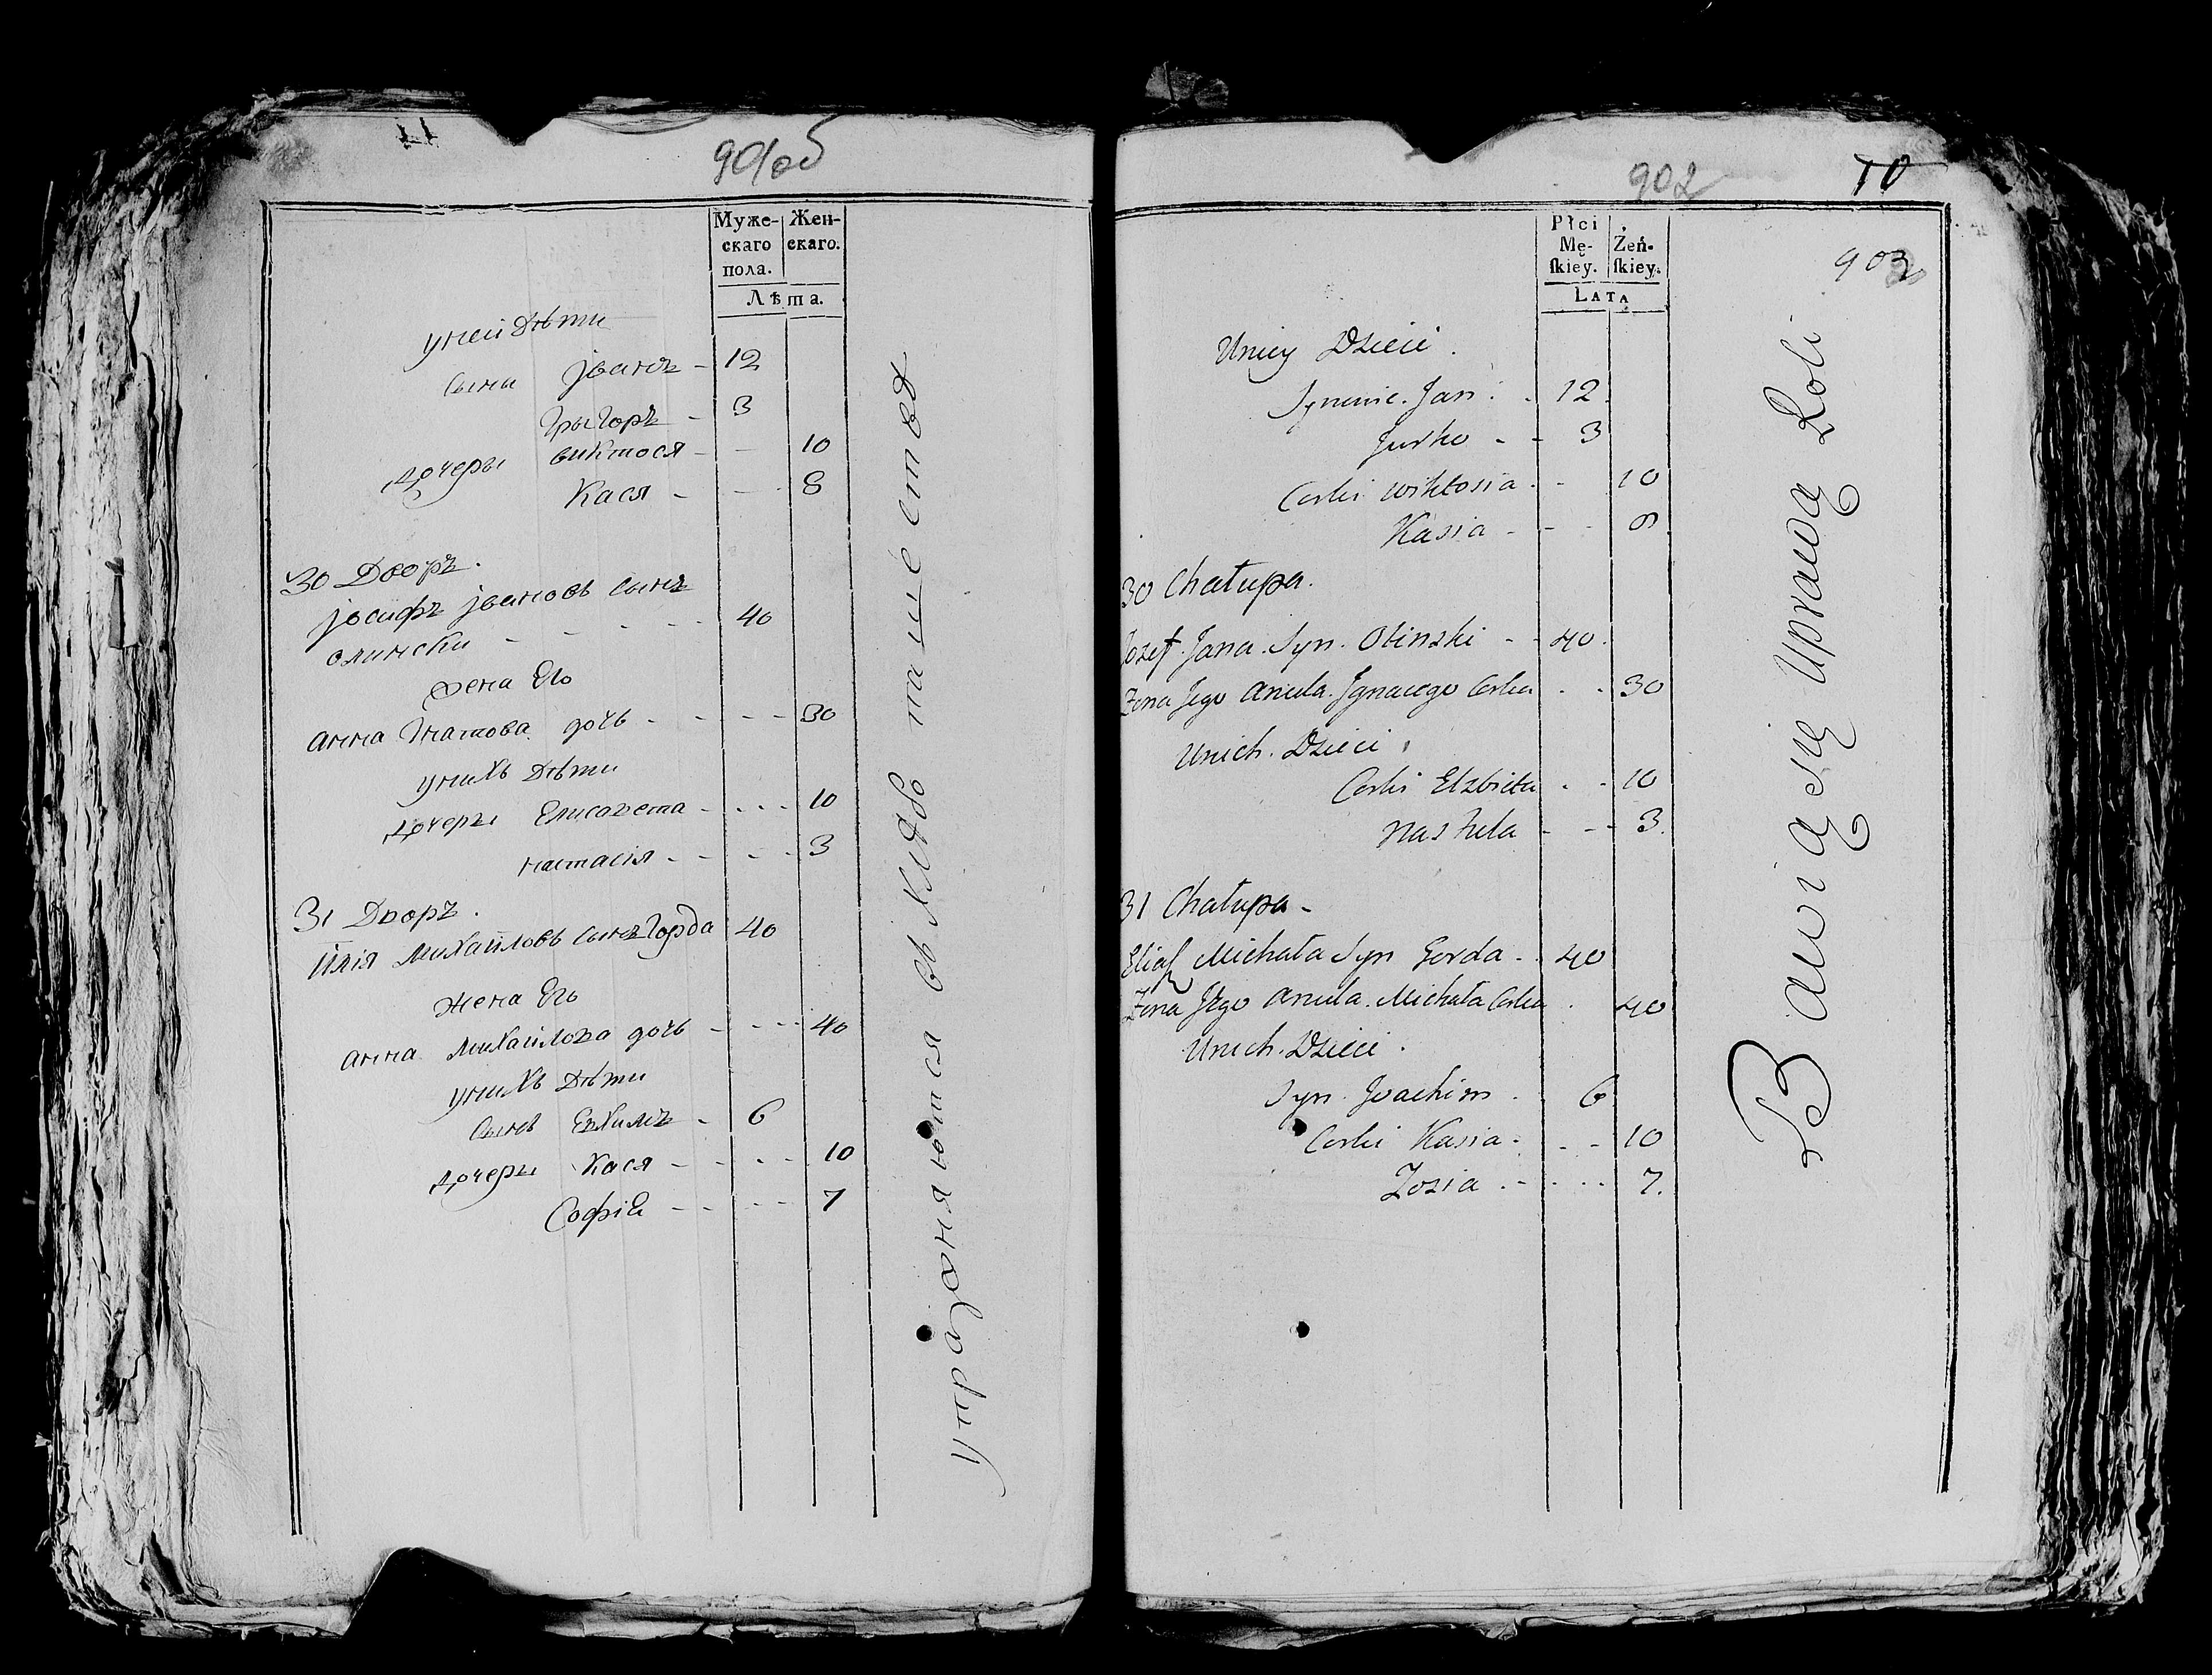 901об
Муже- Жен-
скаго скаго.
пола.
Лѣта.
уней дѣти
сыны jванъ - 12
Грыгоръ - 3
дочеры виктося - - 10
Кася - - - 8
30 Дворъ.
jосифъ jвановъ сынъ
олински - - - - - 40
жена Его
анна Игнатова дочь - - - - 30
унихъ дѣти
дочеры Елисавета - - - - 10
настасія - - - - 3
31 Дворъ.
Илія Михайловъ сынъ Горда 40
жена Его
анна Михайлова дочь - - - - 40
унихъ дѣти
сынъ Евхимъ - 6
дочеры Кася - - - - 10
Софіѣ - - - - 7
упразоняются въ хлѣбо пашествѣ
902
10
903
Płci
Mę- Żeń-
skiey. skiey.
LATA
Uniey Dzieci.
Synowie. Jan. 12.
Jurko - - 3
Corki Wiktosia - - 10
Kasia - - - 8
30 Chałupa.
Jozef Jana Syn. Olinski - - 40.
Zona Jego Aniela. Jgnacego Corka - - 30
Unich. Dzieci.
Corki Elzbieta - - 10
Nastula - - - 3.
31 Chałupa -
Eliasz Michała Syn Gorda - 40
Zona Jego Aniela. Michała Corka . 40
Unich. Dzieci.
Syn Joachim . 6
Corki Kasia - - - 10
Zosia - - - - 7.
Bawią się Uprawą Roli